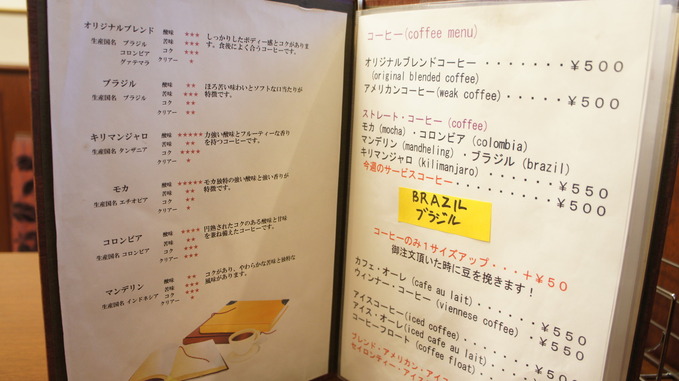 オリジナルブレンド 酸味 ★★★ しっかりしたボディー感とコクがありま
苦味 ★★ す。食後によく合うコーヒーです。
生産国名 ブラジル コク ★★★
コロンビア クリアー ★
グァテマラ
ブラジル 酸味 ★★ ほろ苦い味わいとソフトな口当たりが
苦味 ★★★ 特徴です。
生産国名 ブラジル コク ★★
クリアー ★★
キリマンジャロ 酸味 ★★★★★ 力強い酸味とフルーティーな香り
苦味 ★★ を持つコーヒーです。
生産国名 タンザニア コク ★★★★
クリアー ★
モカ 酸味 ★★★★★ モカ独特の強い酸味と強い香りが
苦味 ★★ 特徴です。
生産国名 エチオピア コク ★★
クリアー ★
コロンビア 酸味 ★★★★ 円熟されたコクのある酸味と甘味
苦味 ★★ を兼ね備えたコーヒーです。
生産国名 コロンビア コク ★★★
クリアー ★★★
マンデリン 酸味 ★★ コクがあり、やわらかな苦味と独特な
苦味 ★★★★ 風味があります。
生産国名 インドネシア コク
クリアー
コーヒー(coffee menu)
オリジナルブレンドコーヒー・・・・・・・¥500
(original blended coffee)
アメリカンコーヒー(weak coffee)・・・・¥500
ストレート・コーヒー(coffee)
モカ(mocha)・コロンビア(colombia)
マンデリン(mandheling)・ブラジル(brazil)
キリマンジャロ(kilimanjaro)・・・・・¥550
今週のサービスコーヒー・・・・・・・¥500
BRAZIL
ブラジル
コーヒーのみ1サイズアップ・・・+¥50
御注文頂いた時に豆を挽きます!
カフェ・オーレ(cafe au lait)・・・・・・¥550
ウィンナー・コーヒー(viennese coffee)・¥550
アイスコーヒー(iced coffee)・・・・・¥550
アイス・オーレ(iced cafe au lait)
コーヒーフロート(coffee float)・・・
ブレンド・アメリカン・アイ
セイロンティー・アイス